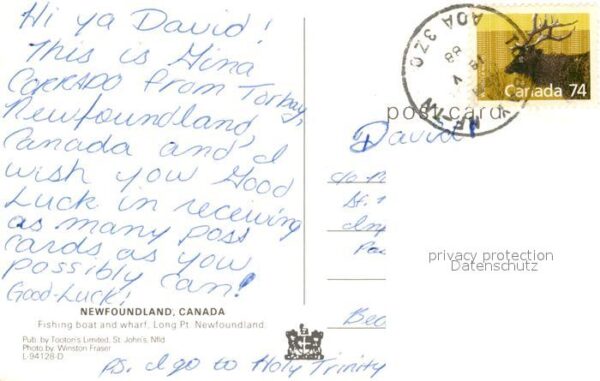 Hi ya David!
This is Gina
CORRADO from Torbay,
Newfoundland,
Canada and I
wish you Good
Luck in receiving
as many post
cards as you
possibly can!
Good-Luck!
NEWFOUNDLAND, CANADA
Fishing boat and wharf, Long Pt. Newfoundland.
Pub. by Tooton's Limited, St. John's, Nfld
Photo by: Winston Fraser
L-94128-D
P.S. I go to Holy Trinity
A0A 3Z0
88
NF-TN
Canada 74
post card
David
c/o
St.
privacy protection
Datenschutz